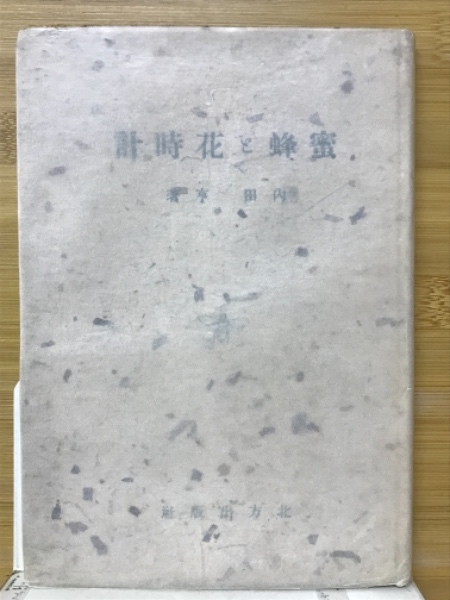 蜜蜂と花時計
内田亨著
北方出版社